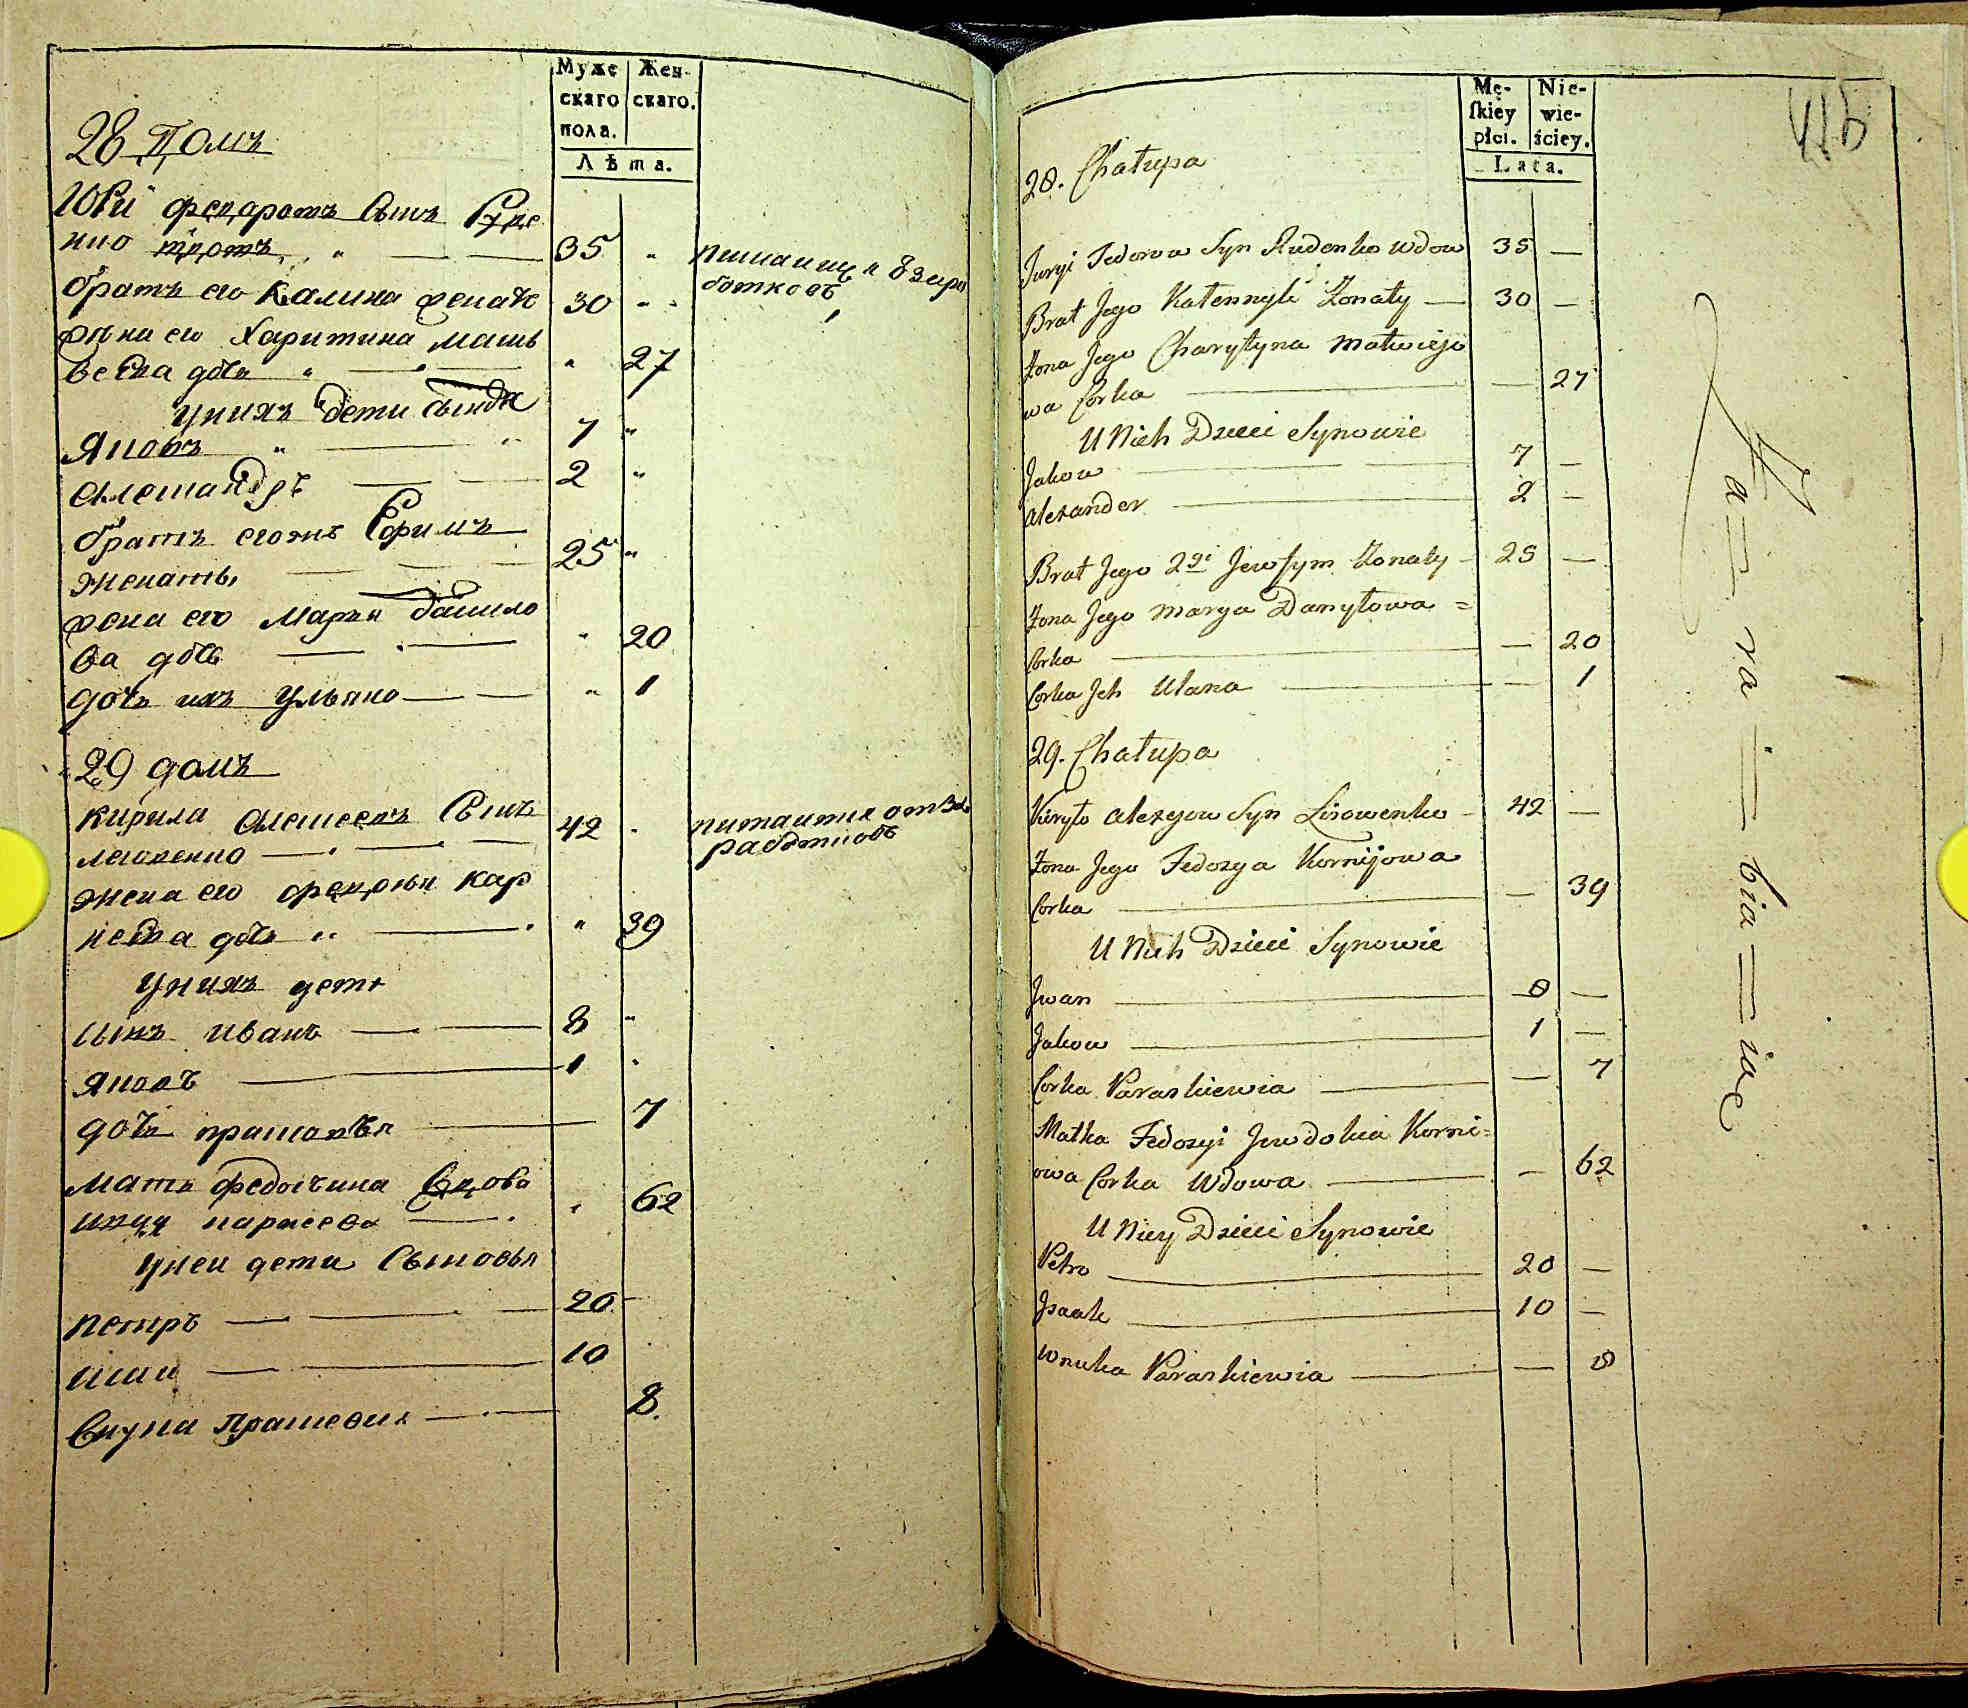 Муже Жен-
скаго скаго.
пола.
Лѣта.
28 Домъ
Юрій федоровъ Сынъ Руде
нко 35 "
питаются Ззаро
ботковъ
братъ его Калина женатъ 30 "
жена его Харитина Матв
вева дочь " 27
У нихъ дети Сынове
Яковъ 7 "
Алешандръ 2 "
братъ егожъ Ефимъ
женатъ 25 "
жена его Марья данило
ва дочь " 20
дочь ихъ Ульяна " 1
29 домъ
Кирила Алешеевъ Сынъ 42
питаитца отза
работковъ
жена его федосья Кар
неева дочь " 39
У нихъ дети
сынъ иванъ 8 "
Яковъ 1
дочь прасковья 7
мать федосьина вдова
62
У ней дети Сыновья
петръ 20
исаи 10
Внука Прасковия 8.
Mę- Nie-
ſkiey wie-
płci. ściey.
Lata.
28. Chałupa
Juryi Fedorow Syn Rudenko wdow 35 —
Brat Jego Kalennyk Żonaty — 30 —
Żona Jego Charytyna Matwiejo
wa Corka — 27
U Nich Dzieci Synowie
Jakow 7 —
Alexander 2 —
Brat Jego 2gi Jewfym Żonaty — 25 —
Żona Jego Marya Danyłowa =
Corka — 20
Corka Jch Ulana — 1
29. Chałupa
Kiryło Alexyow Syn Lisowenko — 42 —
Żona Jego Fedosya Kornijowa
Corka — 39
U Nich Dzieci Synowie
Jwan 8 —
Jakow 1 —
Corka Paraskiewia — 7
Matka Fedosyi Jewdokia Korni=
owa Corka Wdowa — 62
U Niey Dzieci Synowie
Petro 20 —
Jsaak 10 —
Wnuka Paraskiewia — 8
ra = bia = nie